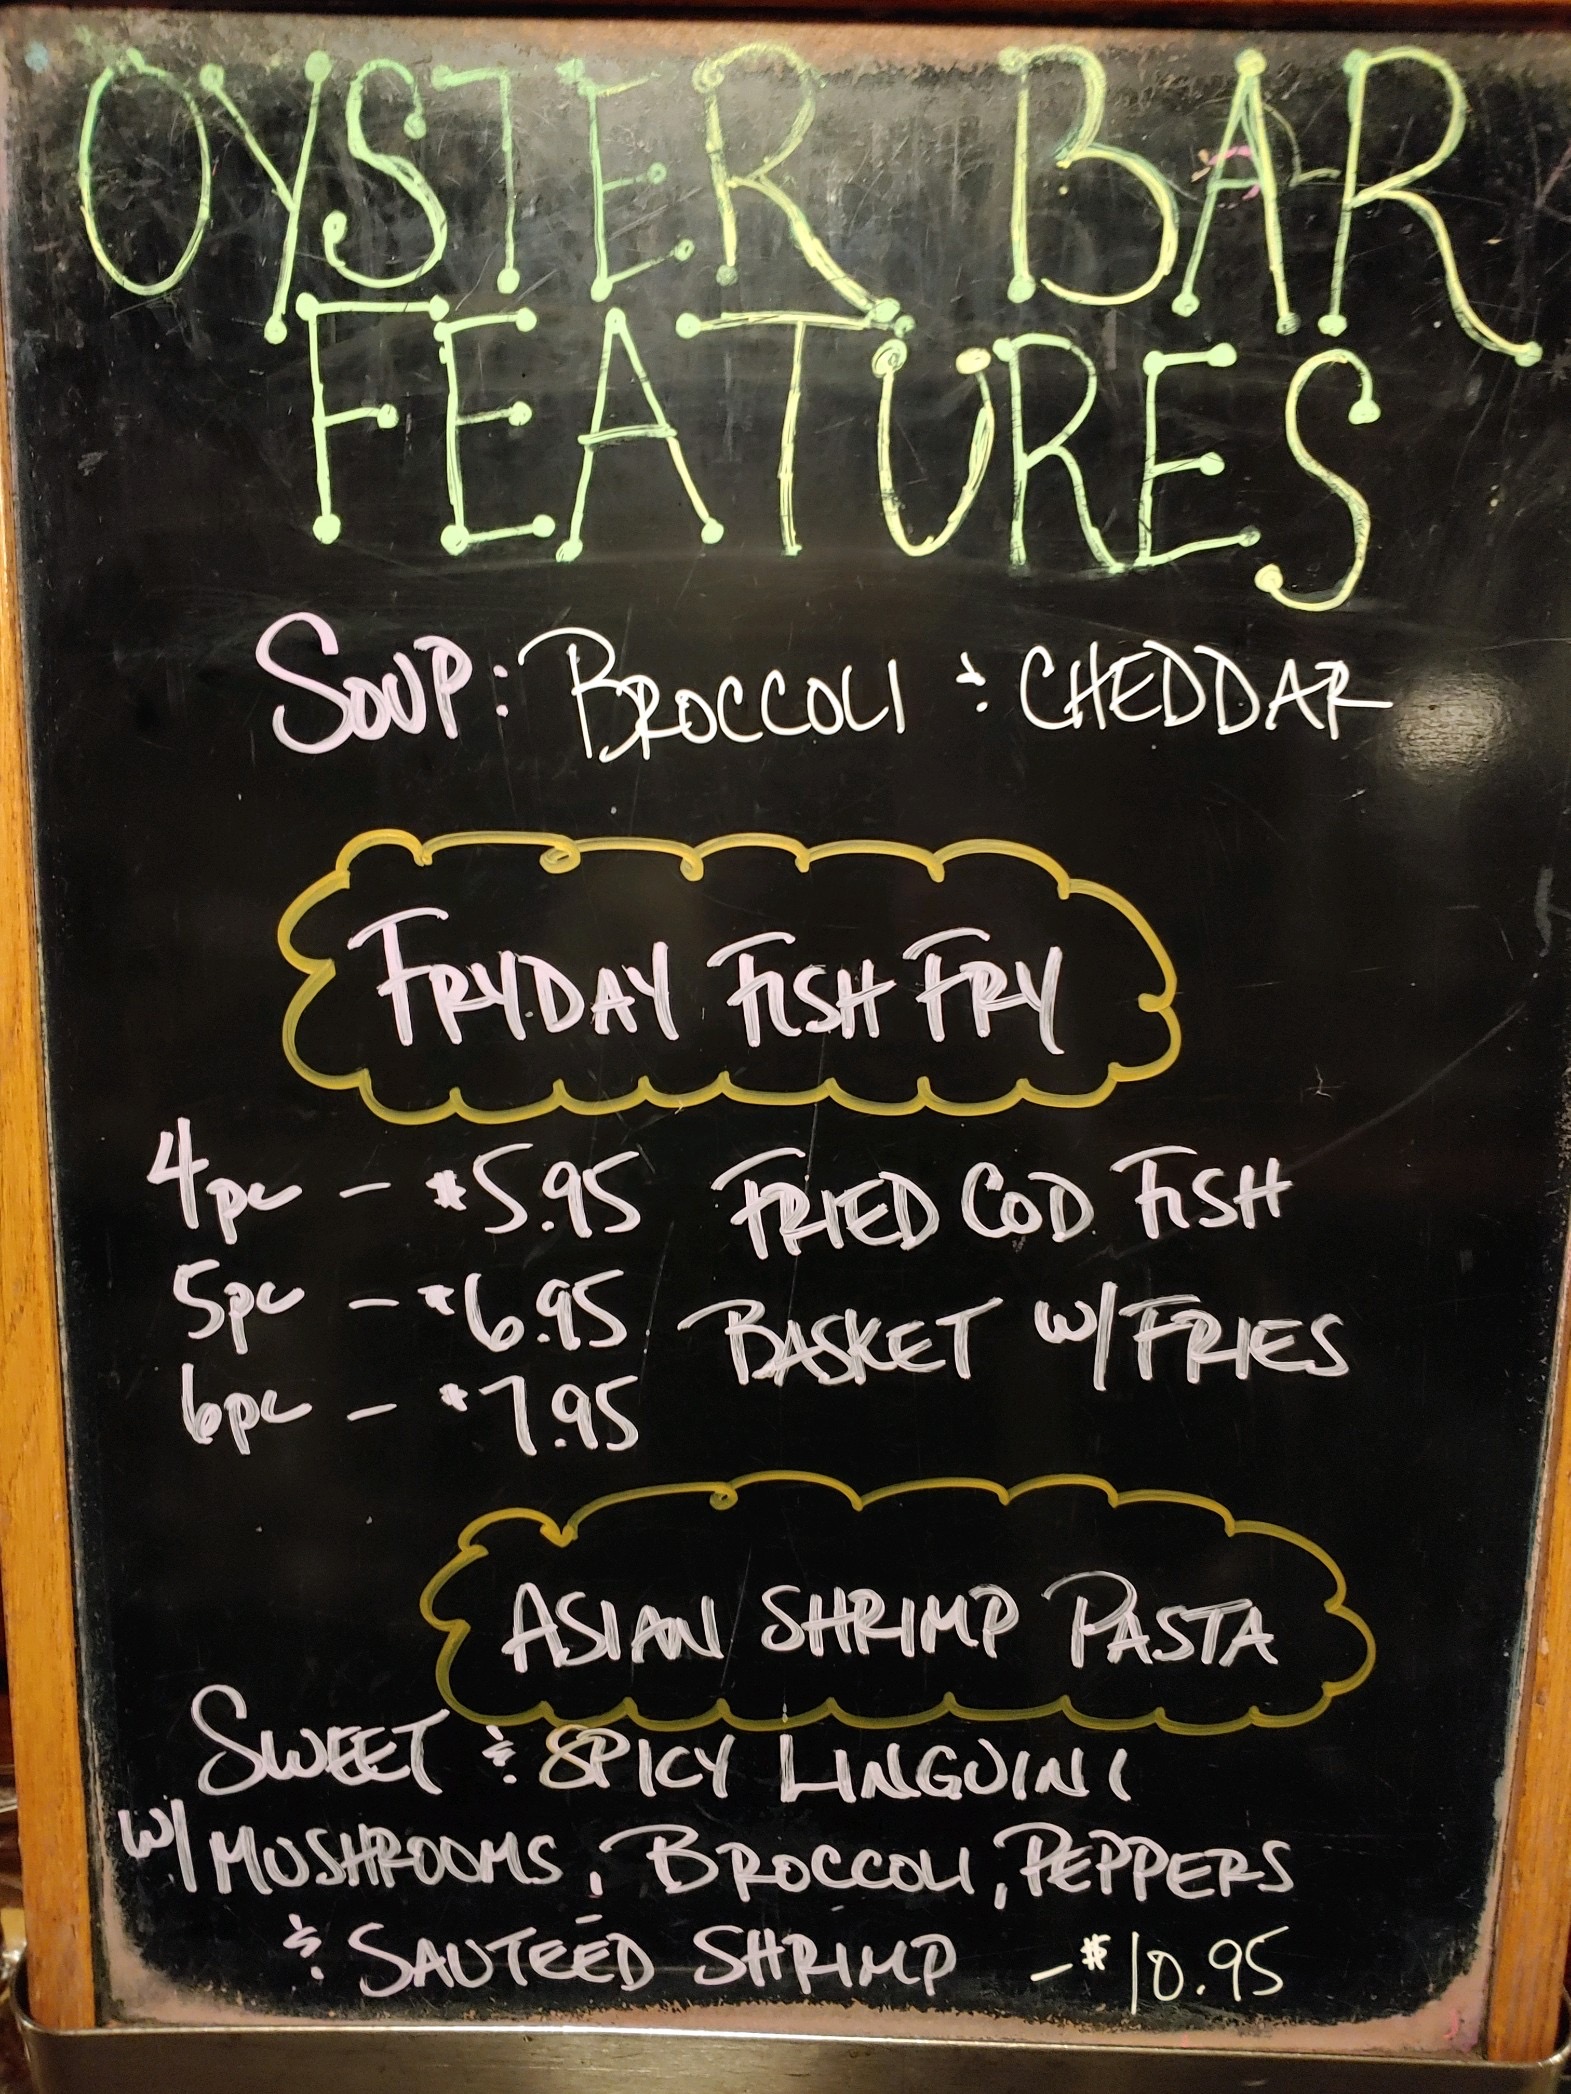 OYSTER BAR
FEATURES
SOUP: BROCCOLI & CHEDDAR
FRYDAY FISH FRY
4pc - $5.95 FRIED COD FISH
5pc - $6.95 BASKET W/FRIES
6pc - $7.95
ASIAN SHRIMP PASTA
SWEET & SPICY LINGUINI
W/MUSHROOMS, BROCCOLI, PEPPERS
& SAUTEED SHRIMP - $10.95